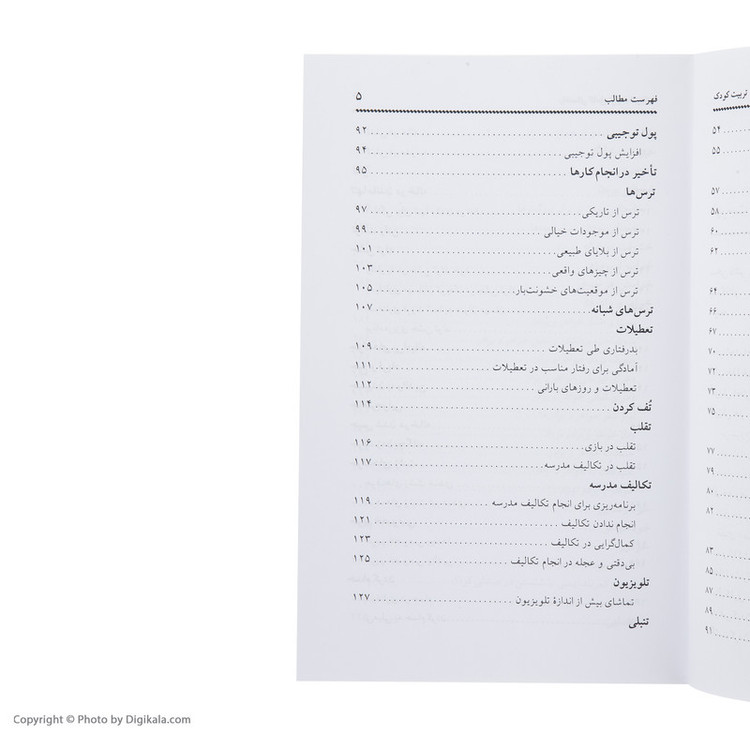 تربیت کودک
۵۴
۵۵
۵۷
۵۸
۶۰
۶۲
۶۴
۶۶
۶۷
۷۰
۷۲
۷۳
۷۵
۷۷
۷۹
۸۰
۸۲
۸۳
۸۵
۸۷
۸۹
۹۱
فهرست مطالب ۵
پول توجیبی ۹۲
افزایش پول توجیبی ۹۴
تأخیر در انجام کارها ۹۵
ترس‌ها
ترس از تاریکی ۹۷
ترس از موجودات خیالی ۹۹
ترس از بلایای طبیعی ۱۰۱
ترس از چیزهای واقعی ۱۰۳
ترس از موقعیت‌های خشونت‌بار ۱۰۵
ترس‌های شبانه ۱۰۷
تعطیلات
بدرفتاری طی تعطیلات ۱۰۹
آمادگی برای رفتار مناسب در تعطیلات ۱۱۱
تعطیلات و روزهای بارانی ۱۱۲
تُف کردن ۱۱۴
تقلب
تقلب در بازی ۱۱۶
تقلب در تکالیف مدرسه ۱۱۷
تکالیف مدرسه
برنامه‌ریزی برای انجام تکالیف مدرسه ۱۱۹
انجام ندادن تکالیف ۱۲۱
کمال‌گرایی در تکالیف ۱۲۳
بی‌دقتی و عجله در انجام تکالیف ۱۲۵
تلویزیون
تماشای بیش از اندازهٔ تلویزیون ۱۲۷
تنبلی
Copyright © Photo by Digikala.com